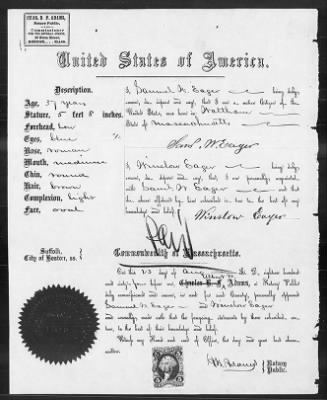 CHAS. B. F. ADAMS,
Notary Public,
United States of America.
Description.
Age, 37 years
Stature, 5 feet 8 inches.
Forehead, low
Eyes, blue
Nose, roman
Mouth, medium
Chin, round
Hair, brown
Complexion, light
Face, oval
I, Samuel W. Eager being duly
sworn, do depose and say, that I am a native Citizen of the
United States, was born in Waltham
State of Massachusetts
Saml. W. Eager
I, Winslow Eager being duly
sworn, do depose and say, that I am personally acquainted
with Saml W. Eager and that
the above affidavit by him subscribed is true to the best of my
knowledge and belief.
Winslow Eager
Suffolk,
City of Boston, ss.
Commonwealth of Massachusetts.
On the A. D. eighteen hundred
and sixty before me Charles B. F. Adams, a Notary Public
duly commissioned and sworn, in and for said County, personally appeared
Samuel W. Eager and Winslow Eager
and severally made oath that the foregoing statements by them subscribed, are
true, to the best of their knowledge and belief.
Witness my Hand and seal of Office, the day and year last above
written.
Notary
Public.